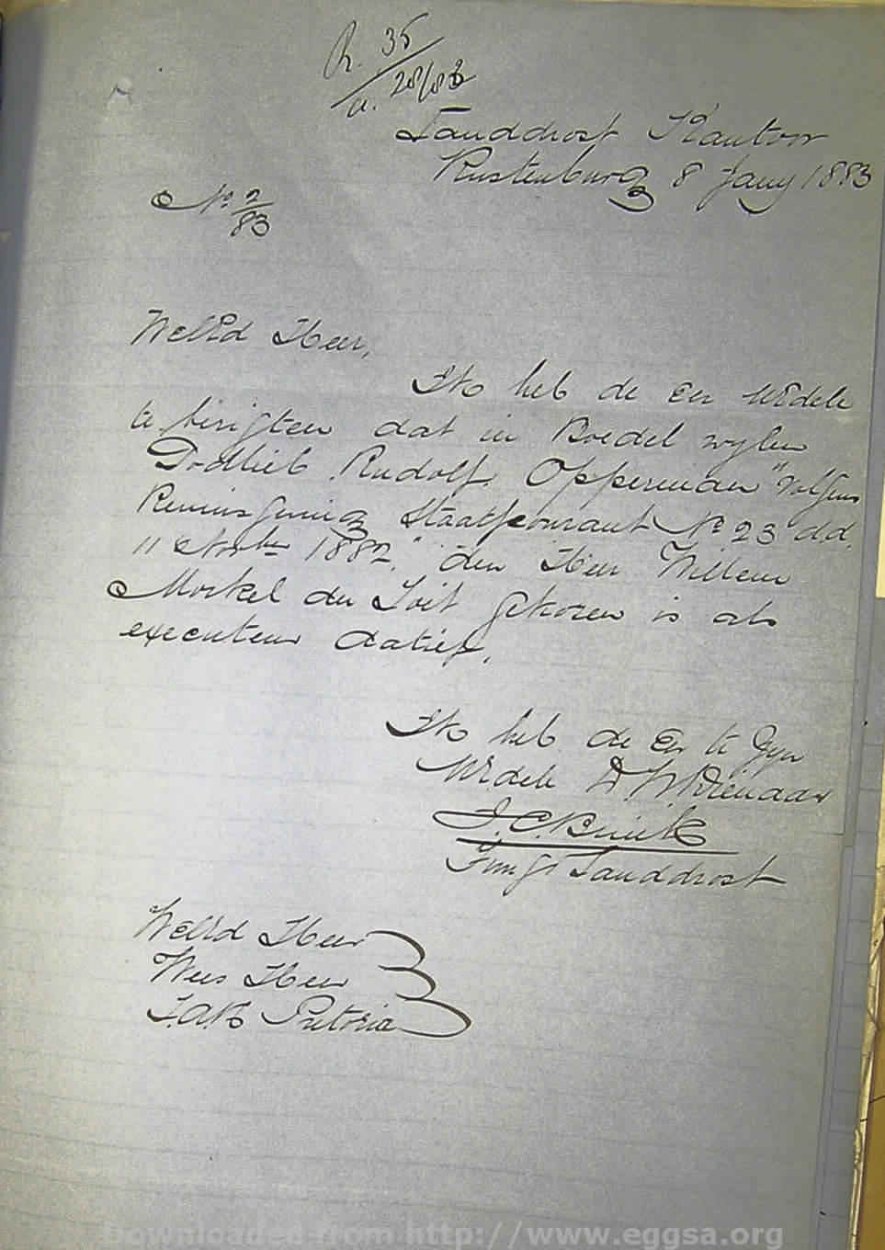 R. 35
a. 28/83
Landdrost Kantoor
Rustenburg 8 Jany 1883
No. 2/83
WelEd Heer,
Ik heb de Eer UEdele
te berigten dat in Boedel wylen
Godlieb Rudolf Opperman "volgens
Kennisgeving Staatscourant No 23 d.d.
11 Novbr 1882," den Heer Willem
Morkel du Toit gekozen is als
executeur datief.
Ik heb de Eer te zyn
UEdele D.W. Dienaar
J.C. Brink
Fung. Landdrost
WelEd Heer
Wees Heer
Z.A.R. Pretoria
Downloaded from http://www.eggsa.org